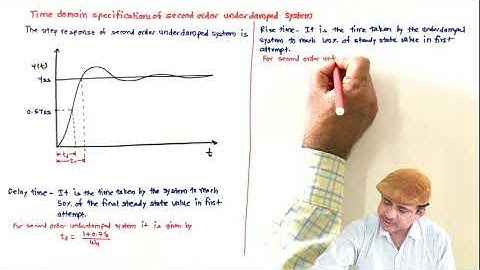 Time domain specifications of second order underdamped system
The step response of second order underdamped system is
y(t)
yss
0.5yss
td
tr
t
Delay time - It is the time taken by the system to reach
50% of the final steady state value in first
attempt.
For second order underdamped system it is given by
td = 1+0.7ξ
ωn
Rise time - It is the time taken by the underdamped
system to reach 100% of steady state value in first
attempt.
For second order und